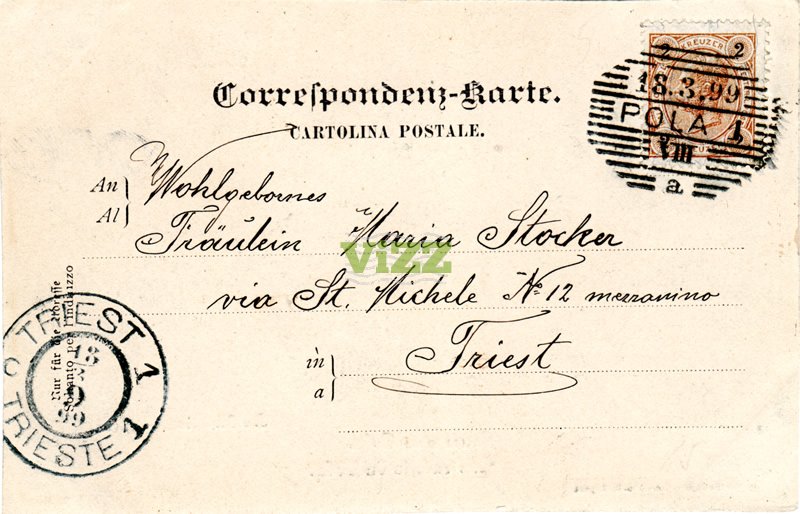 2 KREUZER 2
18.3.99
POLA 1
VIII
a
Correspondenz-Karte.
CARTOLINA POSTALE.
An
Al
Wohlgebornes
Fräulein Maria Stocker
ViZZ
via St. Michele No 12 mezzanino
in
a
Triest
Nur für die Adresse
Soltanto per l'indirizzo
TRIEST 1
18
9
99
TRIESTE 1